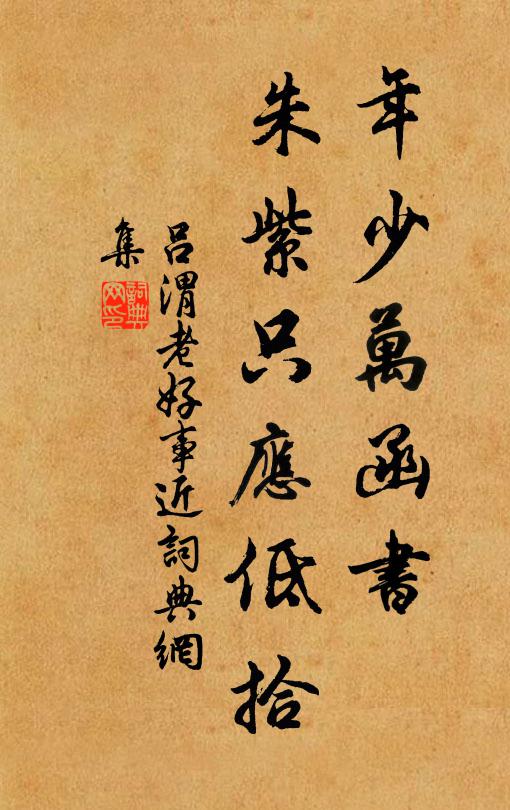 年少萬函書
朱紫只應低拾
吕渭老好事近詞典網
集
詞典
网印